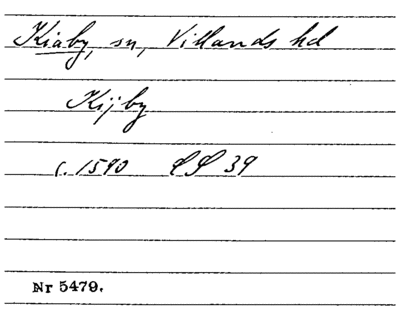 Kiaby, sn, Villands hd
Kijby
c. 1590 LP 39
Nr 5479.